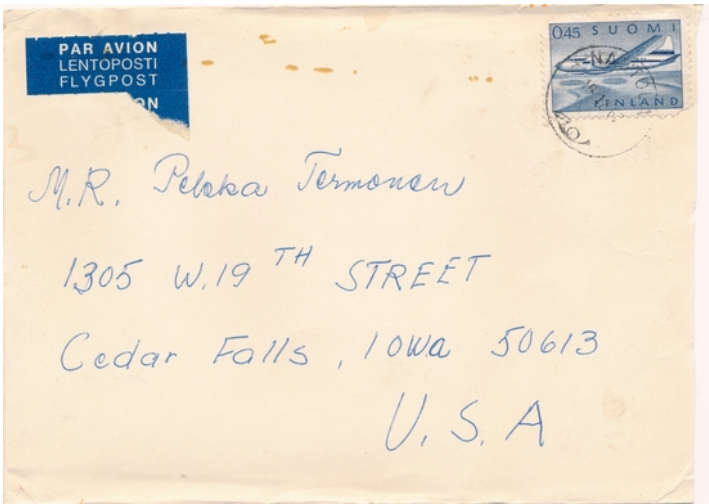 PAR AVION
LENTOPOSTI
FLYGPOST
0,45 SUOMI
FINLAND
M.R. Pekka Termonen
1305 W. 19 TH STREET
Cedar Falls, Iowa 50613
U.S.A